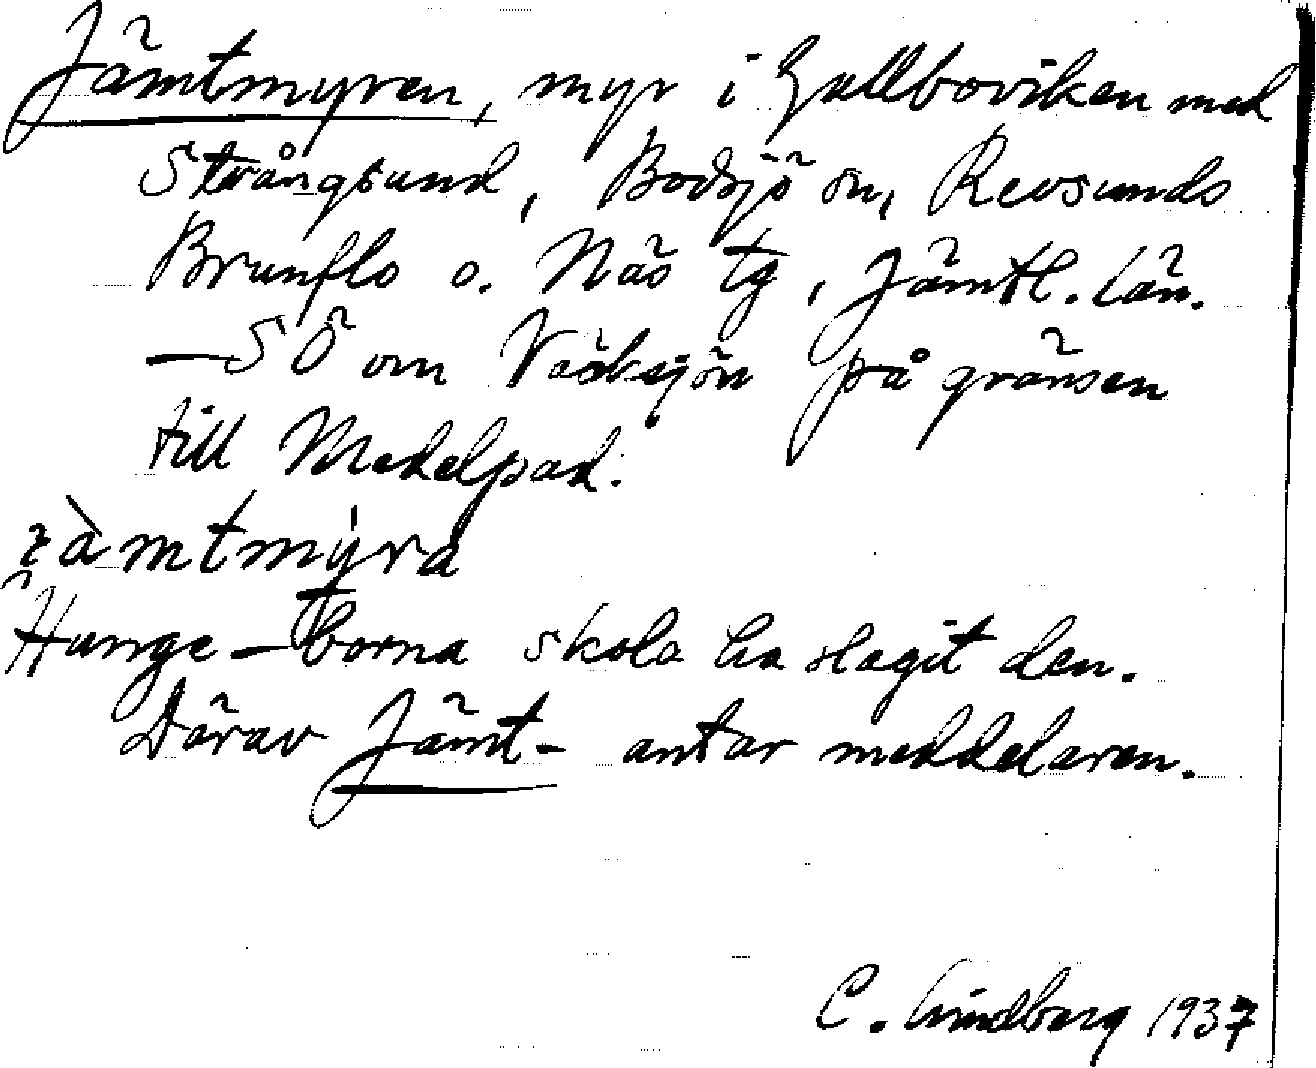 Jämtmyren, myr i Gallboviken med
Strångsund, Bodsjö sn, Revsunds
Brunflo o. Näs tg, Jämtl. län.
— SÖ om Väsksjön på gränsen
till Medelpad.
Hunge-borna skola ha slagit den.
Därav Jämt- antar meddelaren.
C. Lindberg 1937